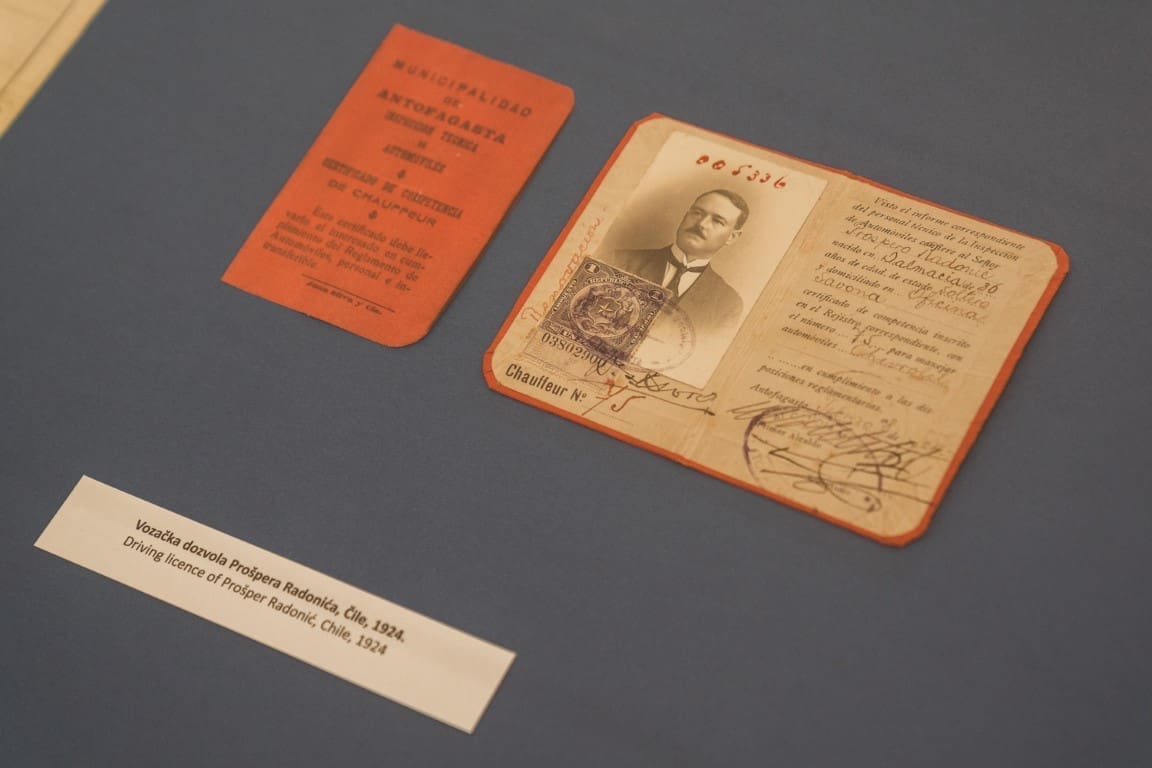 MUNICIPALIDAD
DE
ANTOFAGASTA
INSPECCION TECNICA
DE
AUTOMÓVILES
CERTIFICADO DE COMPETENCIA
DE CHAUFFEUR
Este certificado debe lle-
varlo el interesado en cum-
plimiento del Reglamento de
Automóviles, personal e in-
transferible.
005336
Renovación
1
UN
03802900
Chauffeur Nº
Visto el informe correspondiente
del personal técnico de la Inspección
de Automóviles confiere al Señor
Prospero Radonić
nacido en Dalmacia de 36
años de edad, de estado soltero
y domiciliado en Oficina
Savona
certificado de competencia inscrito
en el Registro correspondiente, con
el número 15 para manejar
automóviles
en cumplimiento a las dis-
posiciones reglamentarias.
Antofagasta
Primer Alcalde
Vozačka dozvola Prošpera Radonića, Čile, 1924.
Driving licence of Prošper Radonić, Chile, 1924